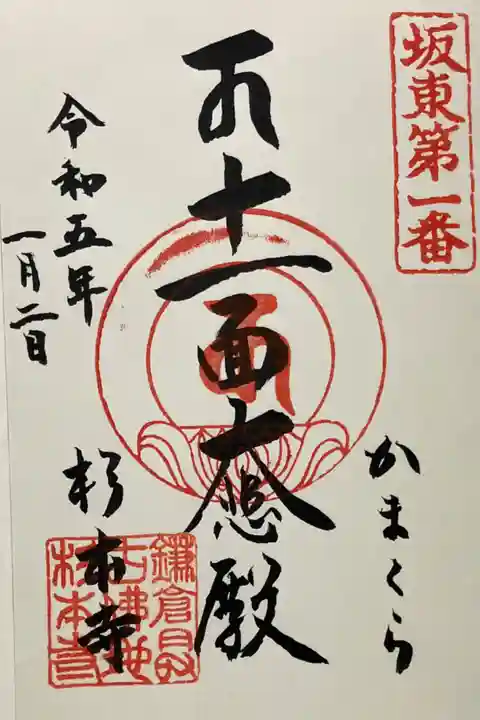 坂東第一番
かまくら
十一面大悲殿
杉本寺
令和五年
一月二日
鎌倉最古佛地
杉本寺